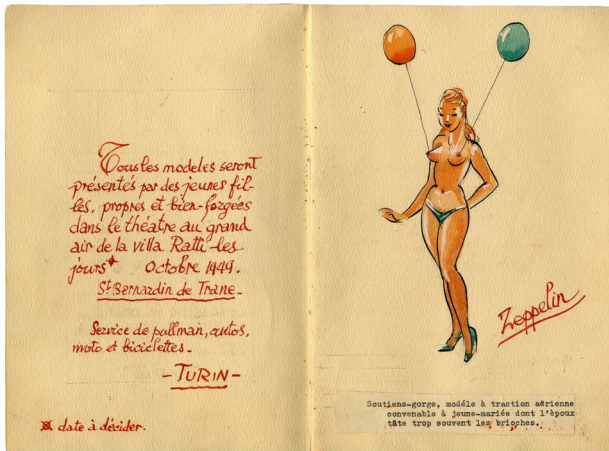 Tous les modeles seront
présentés par des jeunes fil-
les, propres et bien-forgées
dans le théatre au grand
air de la villa Ratti les
jours* Octobre 1949.
St Bernardin de Trane.
Service de pullman, autos,
moto et biciclettes.
- TURIN -
* date à décider.
Zeppelin
Soutiens-gorge, modèle à traction aérienne
convenable à jeune-mariée dont l'èpoux
tâte trop souvent les brioches.